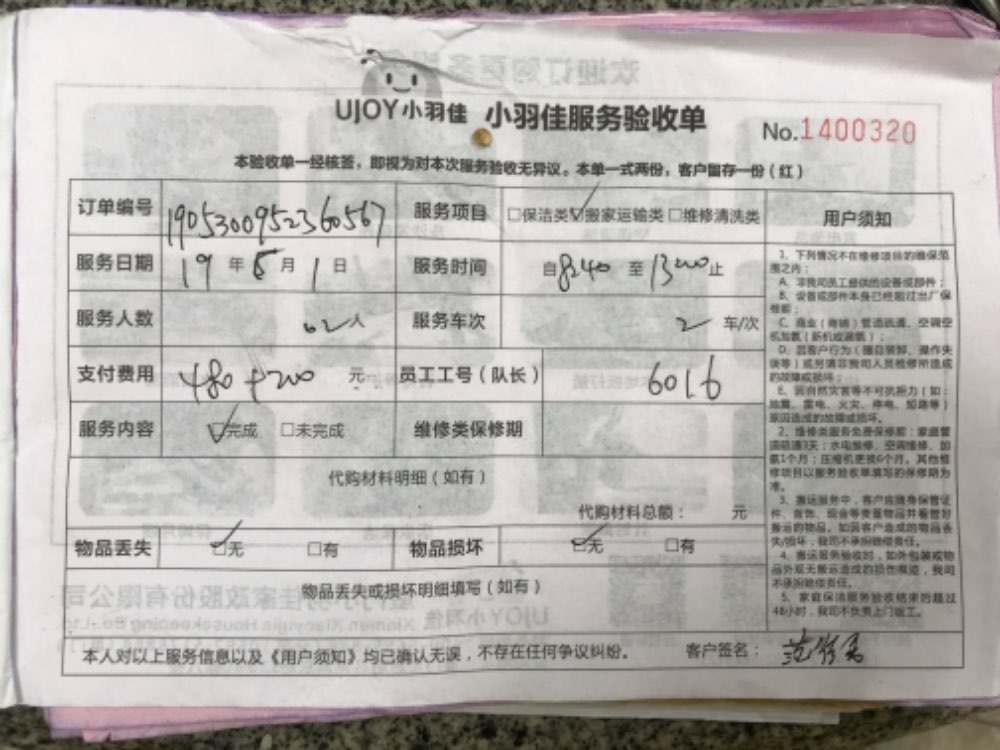 UJOY小羽佳 小羽佳服务验收单 No.1400320
本验收单一经核签，即视为对本次服务验收无异议。本单一式两份，客户留存一份（红）
订单编号 1905300952360567 服务项目 □保洁类 ☑搬家运输类 □维修清洗类 用户须知
服务日期 19年6月1日 服务时间 自8:40至13:00止
服务人数 02人 服务车次 2 车/次
支付费用 480+200 元 员工工号（队长） 6016
服务内容 ☑完成 □未完成 维修类保修期
代购材料明细（如有）
代购材料总额： 元
物品丢失 ☑无 □有 物品损坏 ☑无 □有
物品丢失或损坏明细填写（如有）
本人对以上服务信息以及《用户须知》均已确认无误，不存在任何争议纠纷。 客户签名：
1、下列情况不在维修项目的维保范
围之内：
A、非我司员工提供的设备或部件；
B、设备或部件本身已经超过出厂保
修期；
C、商业（商铺）管道疏通、空调空
机加氨（新机或漏氨）；
D、因客户行为（擅自装卸、操作失
误等）或另请非我司人员维修所造成
的故障或损坏；
E、因自然灾害等不可抗拒力（如：
地震、雷电、火灾、停电、短路等）
原因造成的故障或损坏。
2、维修类服务免费保修期：家庭管
道疏通3天；水电维修、空调维修、加
氨1个月；压缩机更换6个月。其他维
修项目以服务验收单填写的保修期为
准。
3、搬运服务中，客户应随身保管证
件、首饰、现金等贵重物品并看管好
搬运的物品。如因客户造成的物品丢
失/损坏，我司不承担赔偿责任。
4、搬运服务验收时，如外包装或物
品外观无搬运造成的损伤痕迹，我司
不承担赔偿责任。
5、家庭保洁服务验收结束后超过
48小时，我司不负责上门返工。